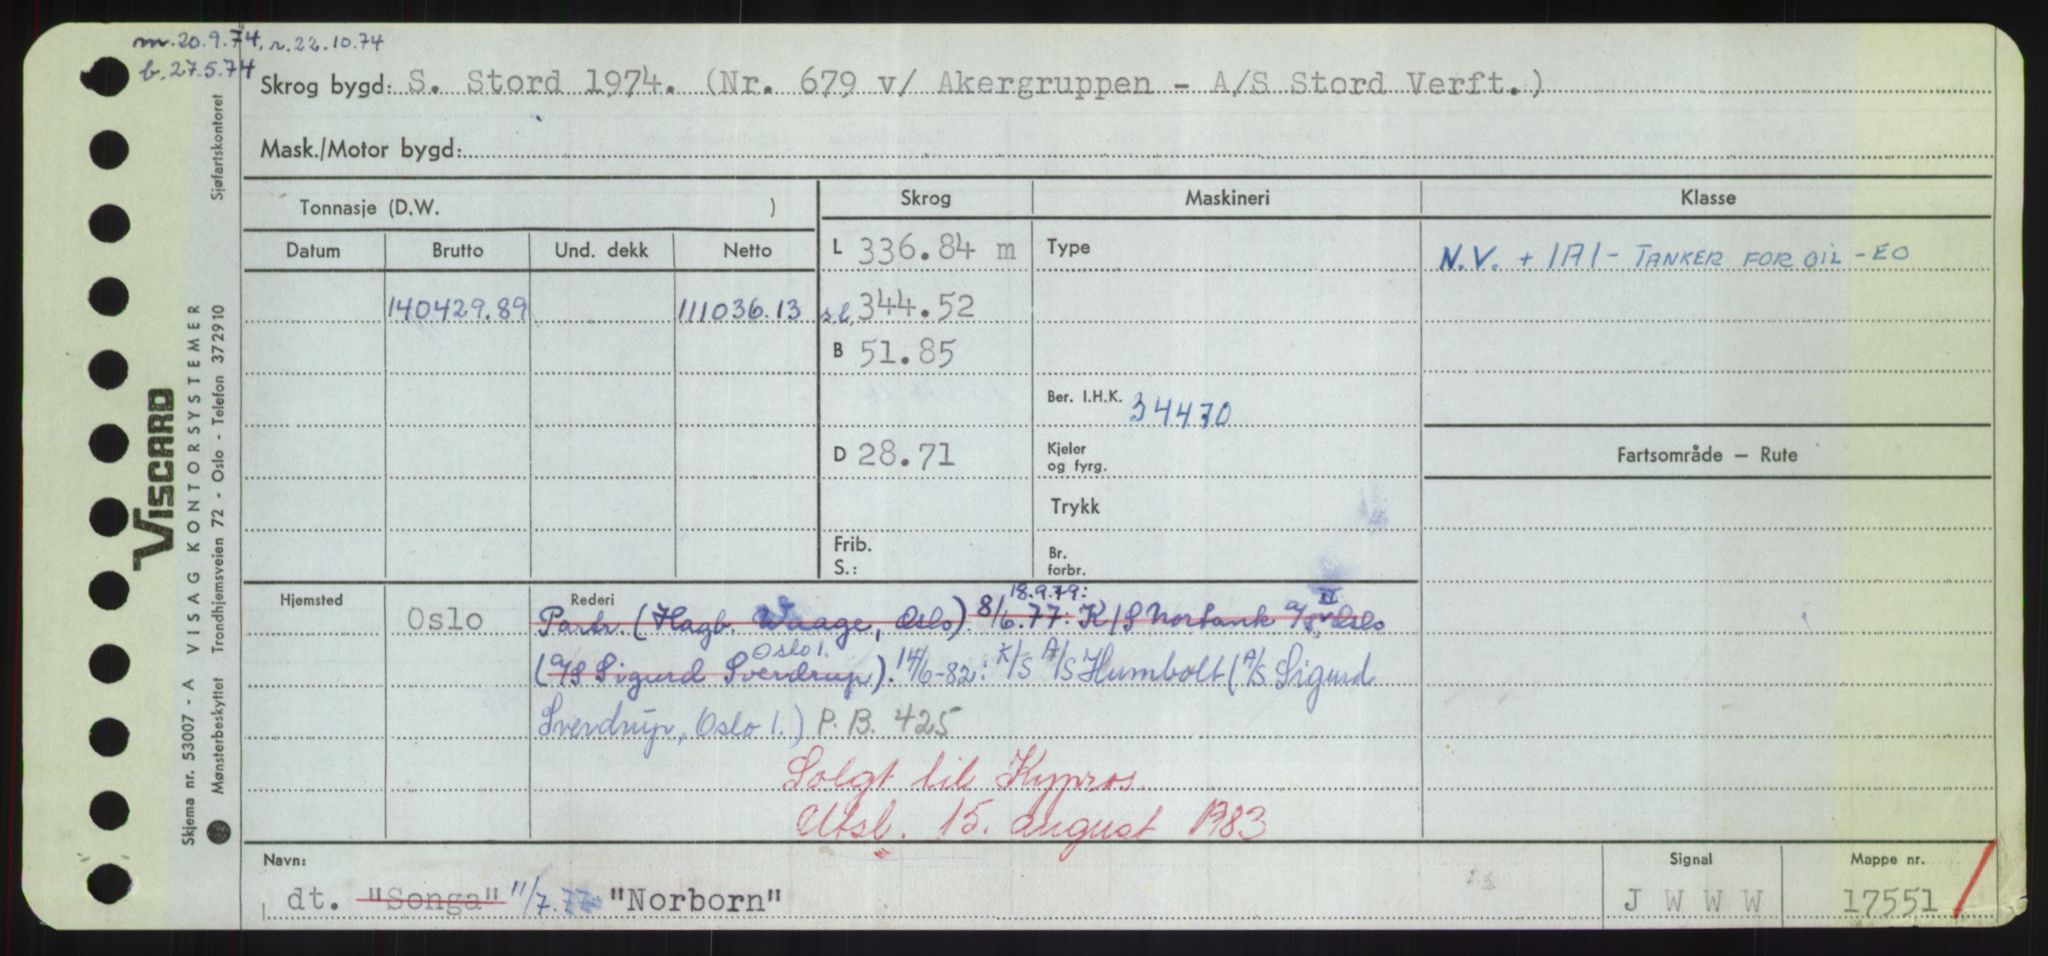 m. 20.9.74, r. 22.10.74
b. 27.5.74
Skrog bygd: S. Stord 1974. (Nr. 679 v/ Akergruppen - A/S Stord Verft.)
Mask./Motor bygd:
Tonnasje (D.W. )
Skrog
Maskineri
Klasse
Datum
Brutto
Und. dekk
Netto
L 336.84 m
Type
N.V. + 1A1 - TANKER FOR OIL - EO
140429.89
111036.13
s.l. 344.52
B 51.85
Ber. I.H.K. 34470
D 28.71
Kjeler
og fyrg.
Fartsområde — Rute
Trykk
Frib.
S.:
Br.
forbr.
Hjemsted
Oslo
Rederi
18.9.79: II
Partr. (Hagb. Waage, Oslo) 8/6.77: K/S Nortank A/S Oslo
Oslo 1.
(A/S Sigurd Sverdrup). 14/6-82: K/S A/S Humbolt (A/S Sigurd
Sverdrup, Oslo 1.) P.B. 425
Solgt til Kypros.
Utsl. 15. august 1983
Navn:
dt. "Songa" 11/7.77 "Norborn"
Signal
J W W W
Mappe nr.
17551
VISCARD
Skjema nr. 53007 - A VISAG KONTORSYSTEMER
Mønsterbeskyttet Trondhjemsveien 72 - Oslo - Telefon 372910
Sjøfartskontoret